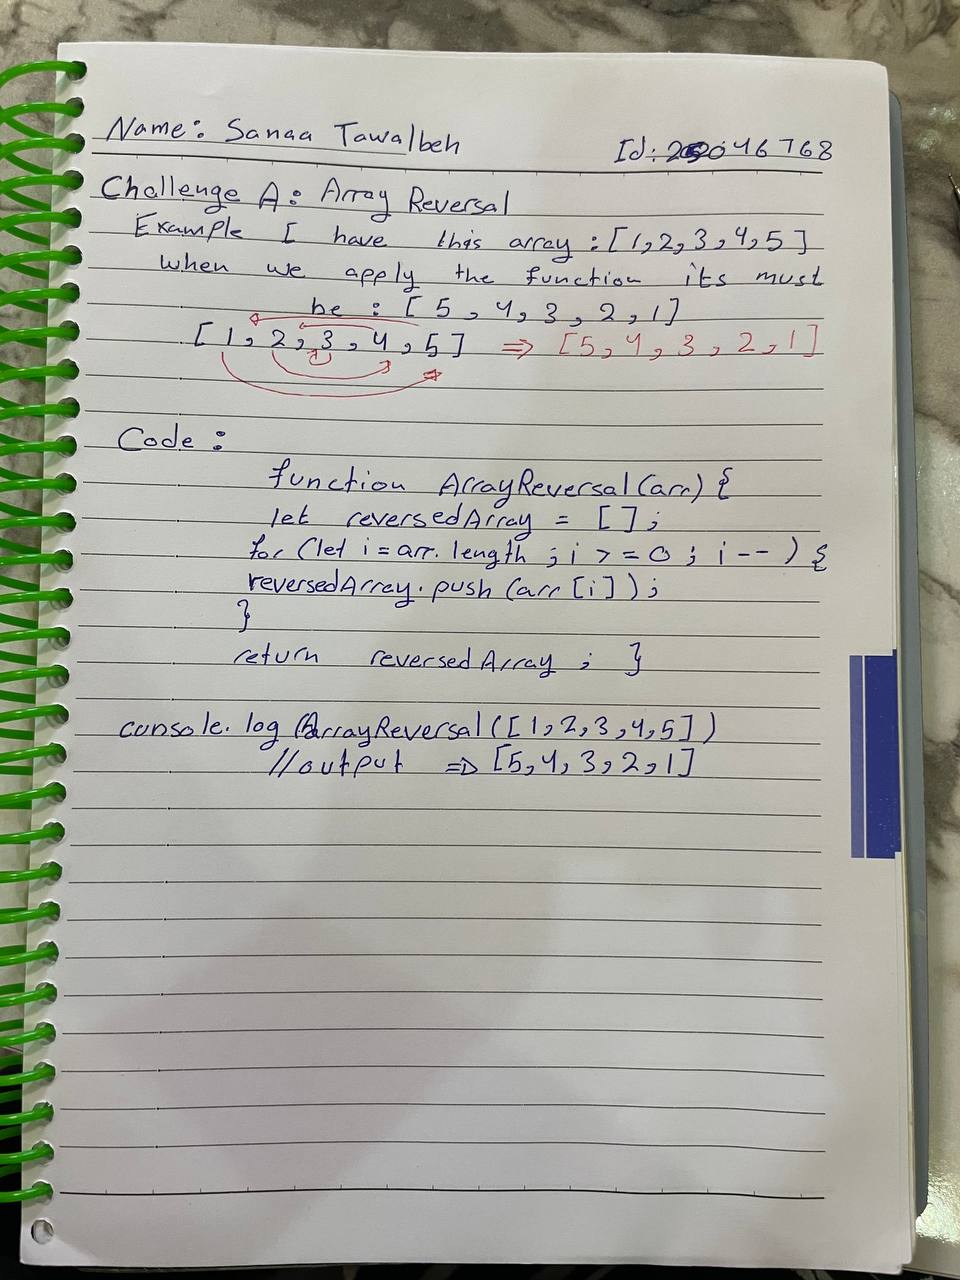 Name: Sanaa Tawalbeh
Challenge A: Array Reversal
Example I have this array : [1,2,3,4,5]
when we apply the function its must
be : [5,4,3,2,1]
[1,2,3,4,5] => [5,4,3,2,1]
Code :
function ArrayReversal(arr) {
let reversedArray = [];
for (let i = arr.length ; i >= 0 ; i--) {
reversedArray.push(arr[i]);
}
return reversedArray ; }
console.log(ArrayReversal([1,2,3,4,5])
//output => [5,4,3,2,1]